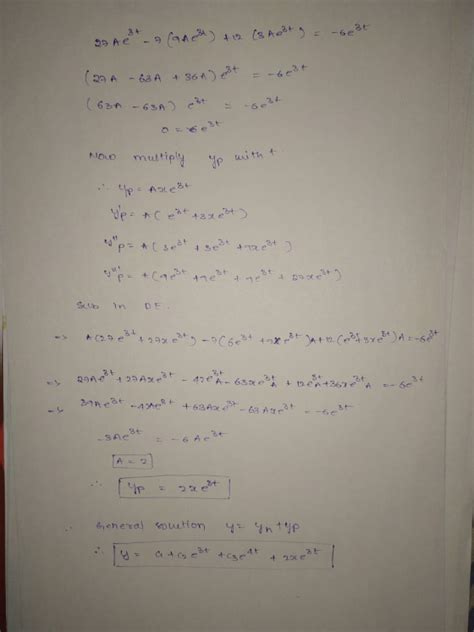 27Ae^3t - 7(9Ae^3t) + 12(3Ae^3t) = -6e^3t
(27A - 63A + 36A)e^3t = -6e^3t
(63A - 63A) e^3t = -6e^3t
0 = -6e^3t
Now multiply yp with t
∴ yp = Axe^3t
y'p = A(e^3t + 3xe^3t)
y''p = A(3e^3t + 3e^3t + 9xe^3t)
y'''p = A(9e^3t + 9e^3t + 9e^3t + 27xe^3t)
Sub in DE.
=> A(27e^3t + 27xe^3t) - 7(6e^3t + 9xe^3t)A + 12(e^3t + 3xe^3t)A = -6e^3t
=> 27Ae^3t + 27Axe^3t - 42e^3tA - 63xe^3tA + 12e^3tA + 36xe^3tA = -6e^3t
=> 39Ae^3t - 42Ae^3t + 63Axe^3t - 63Axe^3t = -6e^3t
-3Ae^3t = -6Ae^3t
A = 2
∴ yp = 2xe^3t
∴ General solution y = yh + yp
∴ y = c1 + c2e^3t + c3e^4t + 2xe^3t